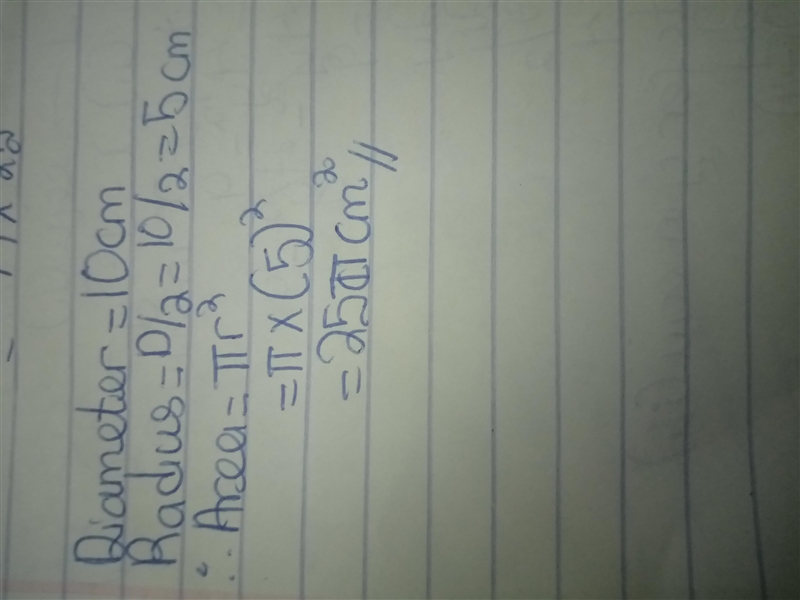 Diameter = 10cm
Radius = D/2 = 10/2 = 5cm
∴ Area = πr²
= π x (5)²
= 25π cm² //